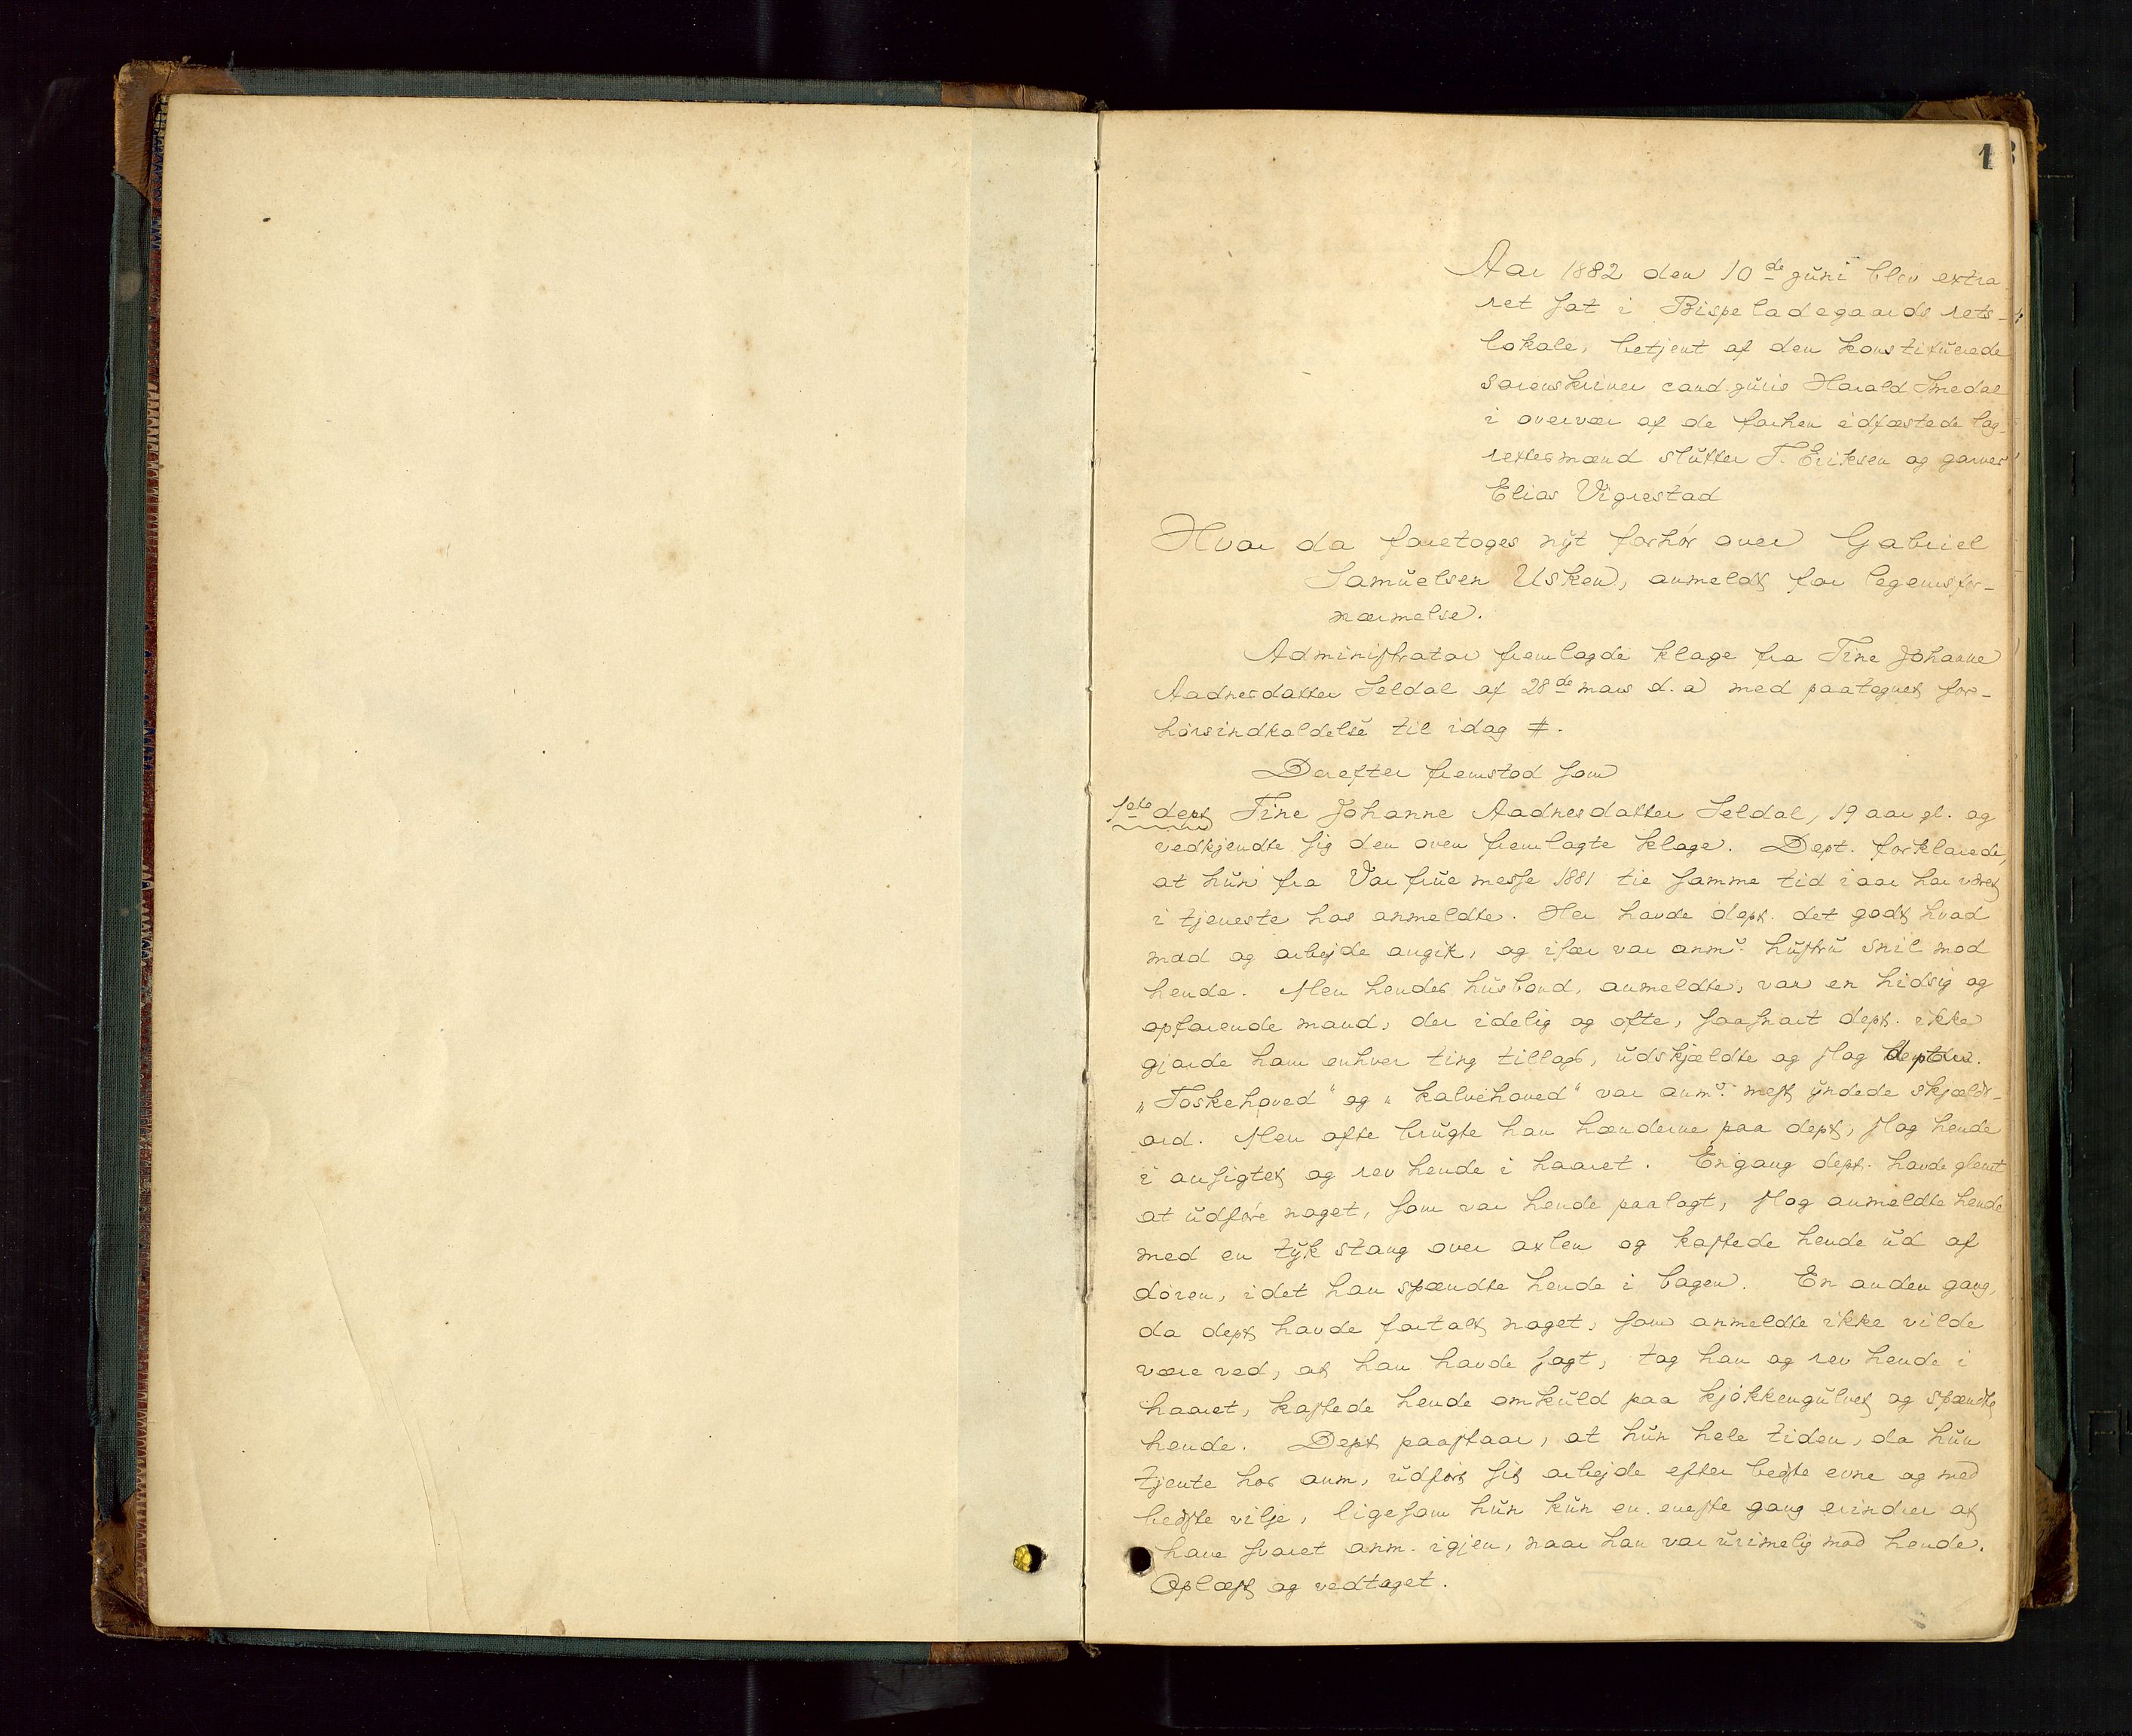 1
Aar 1882 den 10de juni blev extra
ret sat i Bispeladegaards rets-
lokale, betjent af den konstituerede
sorenskriver cand. juris Harald Smedal
i overvær af de forhen edfæstede lag-
rettesmænd slutter T. Eriksen og garver
Elias Vigrestad
Hvor da foretoges nyt forhør over Gabriel
Samuelsen Usken, anmeldt for legemsfor-
nærmelse.
Administrator fremlagde klage fra Tine Johanne
Aadnesdatter Seldal af 28de mars d. a med paategnet for-
hørsindkaldelse til idag #.
Derefter fremstod som
1ste dept Tine Johanne Aadnesdatter Seldal, 19 aar gl. og
vedkjendte sig den oven fremlagte klage. Dept. forklarede,
at hun fra Vor frue messe 1881 til samme tid iaar har været
i tjeneste hos anmeldte. Her havde dept. det godt hvad
mad og arbejde angik, og især var anms. hustru snil mod
hende. Men hendes husbond, anmeldte, var en hidsig og
opfarende mand, der idelig og ofte, saasnart dept. ikke
gjorde ham enhver ting tillags, udskjældte og slog deptn.
„Toskehoved" og „kalvehoved" var anms. mest yndede skjælds-
ord. Men ofte brugte han hænderne paa dept, slog hende
i ansigtet og rev hende i haaret. Engang dept. havde glemt
at udføre noget, som var hende paalagt, slog anmeldte hende
med en tyk stang over axlen og kastede hende ud af
døren, idet han spændte hende i bagen. En anden gang,
da dept havde fortalt noget, som anmeldte ikke vilde
være ved, at han havde sagt, tog han og rev hende i
haaret, kastede hende omkuld paa kjøkkengulvet og spændte
hende. Dept paastaar, at hun hele tiden, da hun
tjente hos anm, udført sit arbejde efter bedste evne og med
bedste vilje, ligesom hun kun en eneste gang erindrer at
have svaret anm. igjen, naar han var urimelig mod hende.
Oplæst og vedtaget.